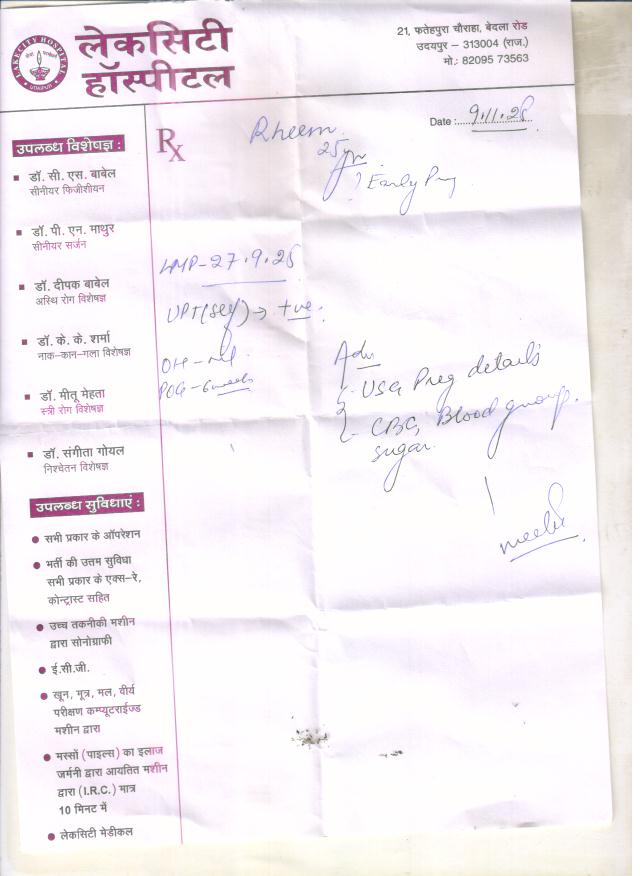 लेकसिटी
हॉस्पीटल
LAKECITY HOSPITAL
UDAIPUR
21, फतेहपुरा चौराहा, बेदला रोड
उदयपुर – 313004 (राज.)
मो.: 82095 73563
Date : 9.11.25
Rx
Rheem
25 yr
? Early Preg
LMP - 27.9.25
UPT (self) → +ve.
OH - nil
POG - 6 weeks
Adv
USG Preg details
CBC, Blood group,
sugar.
उपलब्ध विशेषज्ञ :
डॉ. सी. एस. बाबेल
सीनीयर फिजीशीयन
डॉ. पी. एन. माथुर
सीनीयर सर्जन
डॉ. दीपक बाबेल
अस्थि रोग विशेषज्ञ
डॉ. के. के. शर्मा
नाक–कान–गला विशेषज्ञ
डॉ. मीतू मेहता
स्त्री रोग विशेषज्ञ
डॉ. संगीता गोयल
निश्चेतन विशेषज्ञ
उपलब्ध सुविधाएं :
सभी प्रकार के ऑपरेशन
भर्ती की उत्तम सुविधा
सभी प्रकार के एक्स–रे,
कोन्ट्रास्ट सहित
उच्च तकनीकी मशीन
द्वारा सोनोग्राफी
ई.सी.जी.
खून, मूत्र, मल, वीर्य
परीक्षण कम्प्यूटराईज्ड
मशीन द्वारा
मस्सों (पाइल्स) का इलाज
जर्मनी द्वारा आयतित मशीन
द्वारा (I.R.C.) मात्र
10 मिनट में
लेकसिटी मेडीकल